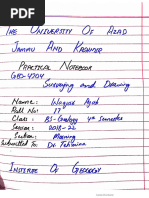 THE UNIVERSITY OF AZAD
JAMMU AND KASHMIR
PRACTICAL NOTEBOOK
GEO-4204
Surveying and Drawing
Name: Waqar Ayat
Roll No: 17
Class: BS-Geology 4th semester
Session: 2018-22
Section: Morning
Submitted To: Dr. Tehmina
INSTITUTE OF GEOLOGY